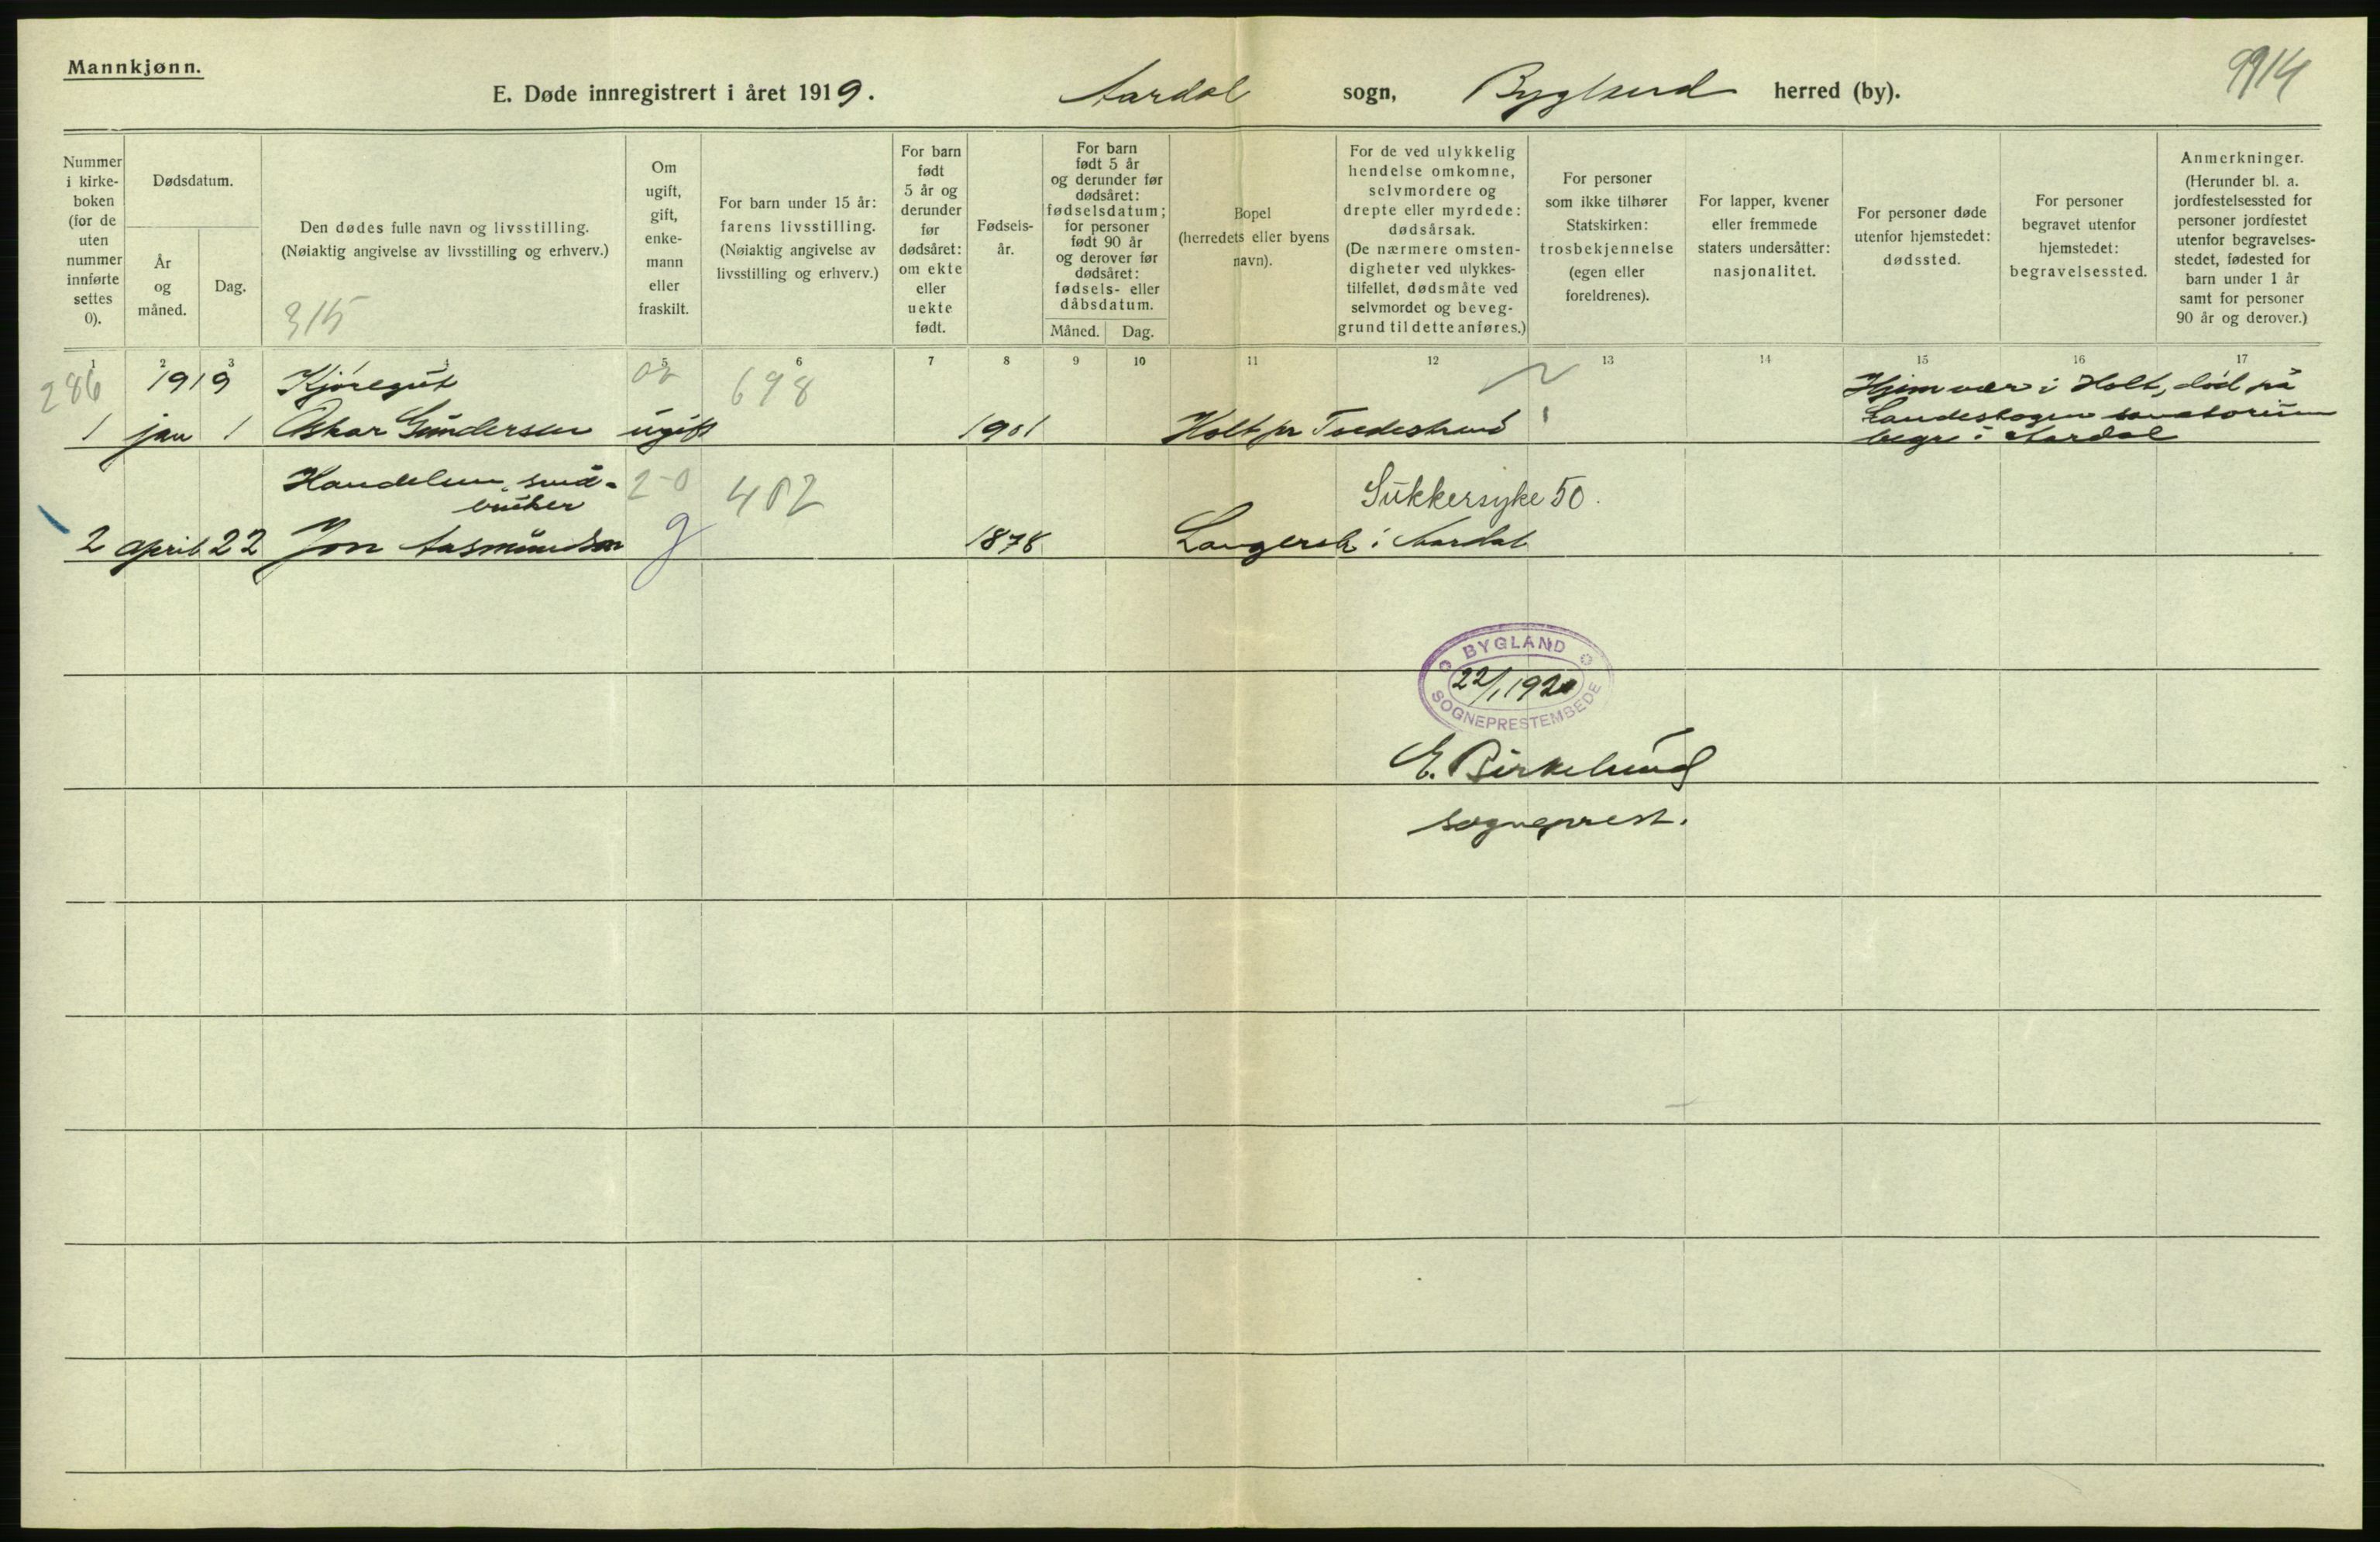 Mannkjønn.
9914
E. Døde innregistrert i året 1919. Aardal sogn, Bygland herred (by).
Nummer
i kirke-
boken
(for de
uten
nummer
innførte
settes
0).
Dødsdatum.
År
og
måned.
Dag.
Den dødes fulle navn og livsstilling.
(Nøiaktig angivelse av livsstilling og erhverv.)
315
Om
ugift,
gift,
enke-
mann
eller
fraskilt.
For barn under 15 år:
farens livsstilling.
(Nøiaktig angivelse av
livsstilling og erhverv.)
For barn
født
5 år og
derunder
før
dødsåret:
om ekte
eller
uekte
født.
Fødsels-
år.
For barn
født 5 år
og derunder før
dødsåret:
fødselsdatum;
for personer
født 90 år
og derover før
dødsåret:
fødsels- eller
dåbsdatum.
Måned. Dag.
Bopel
(herredets eller byens
navn).
For de ved ulykkelig
hendelse omkomne,
selvmordere og
drepte eller myrdede:
dødsårsak.
(De nærmere omsten-
digheter ved ulykkes-
tilfellet, dødsmåte ved
selvmordet og beveg-
grund til dette anføres.)
For personer
som ikke tilhører
Statskirken:
trosbekjennelse
(egen eller
foreldrenes).
For lapper, kvener
eller fremmede
staters undersåtter:
nasjonalitet.
For personer døde
utenfor hjemstedet:
dødssted.
For personer
begravet utenfor
hjemstedet:
begravelsessted.
Anmerkninger.
(Herunder bl. a.
jordfestelsessted for
personer jordfestet
utenfor begravelses-
stedet, fødested for
barn under 1 år
samt for personer
90 år og derover.)
1 2 3 4 5 6 7 8 9 10 11 12 13 14 15 16 17
286 1919 Kjøregut 02 698 Hjem var i Holt, død på
1 jan 1 Oskar Gundersen ugift 1901 Holt pr Tvedestrand Landeskogen sanatorium
begr i Aardal
2-0 402 Sukkersyke 50.
2 april 22 Jon Aasmundson g 1878 Langerak i Aardal
BYGLAND
22/1 1920
SOGNEPRESTEMBEDE
E. Birkelund
sogneprest.